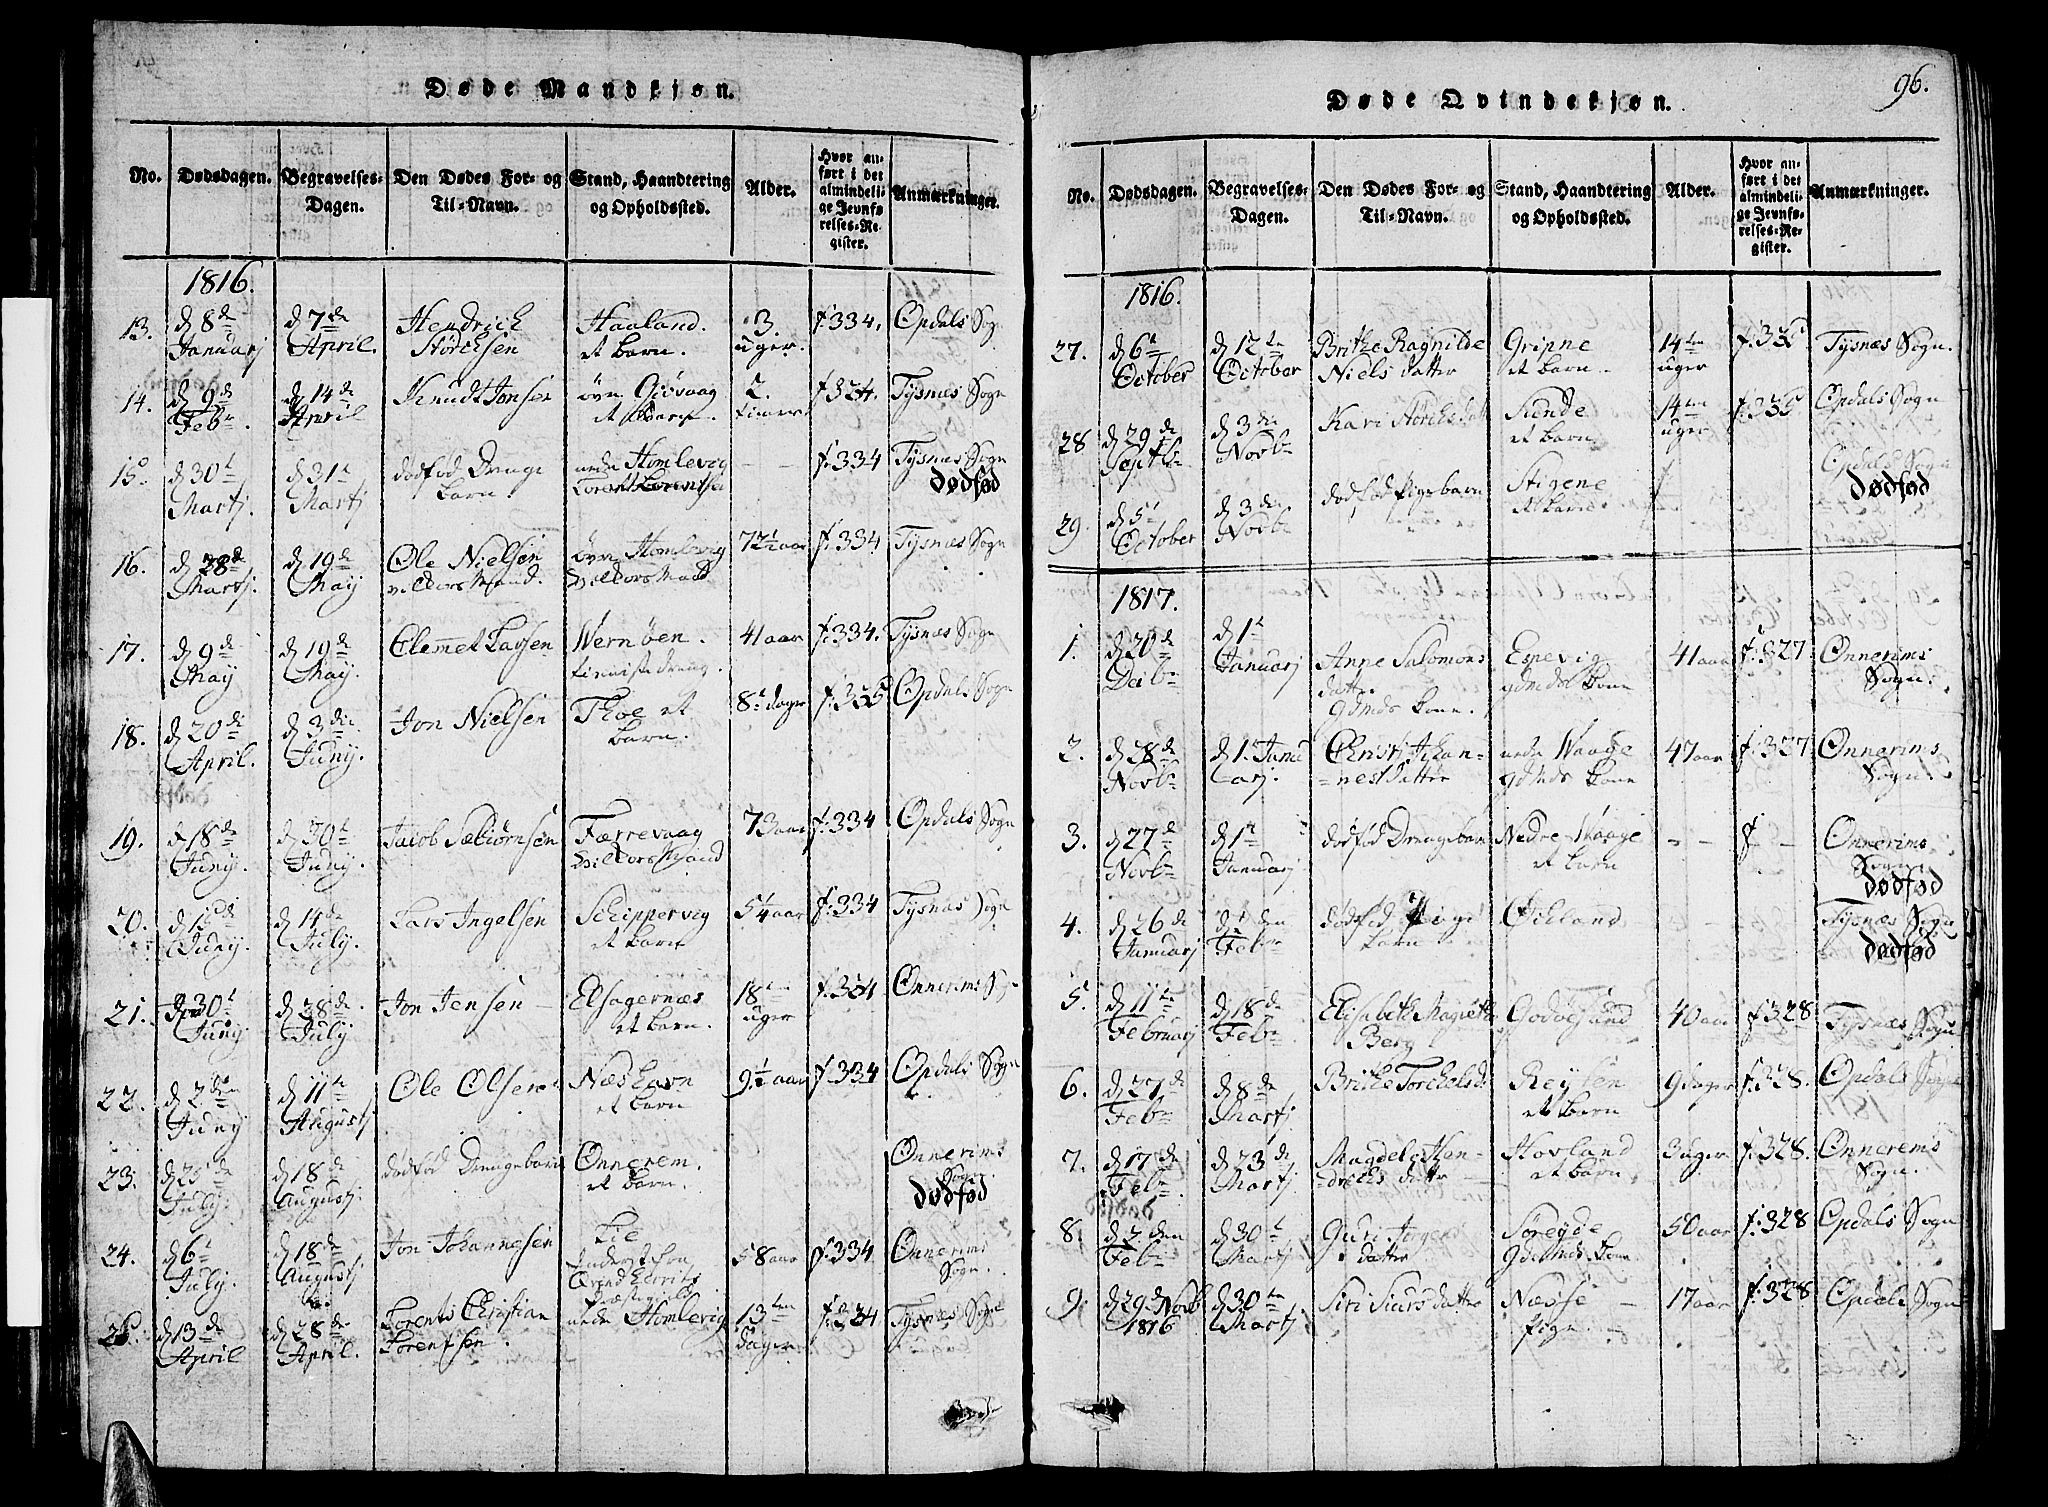 Døde Mandkjøn.
No. Dødsdagen. Begravelses-Dagen. Den Dødes For- og Til-Navn. Stand, Haandtering og Opholdssted. Alder. Hvor anført i det almindelige Jevnførelses-Register. Anmærkninger.
1816.
13. d 8de Januarj d 7de April. Hendrich Størchsen Haaland. et barn. 3. uger. f. 334. Opdals Sogn
14. d 9de Febr. d 14de April Knudt Jonsen øvre Gjøvaag et barn. 2. timer f. 324. Tysnæs Sogn
15. d 30t Martj. d 31t Martj dødfød Drenge barn nedre Homlevig Lorents Lorentsen - - f. 334 Tysnæs Sogn dødfød
16. d 28de Martj. d 19de May Ole Nielsen vilkors Mand. øvre Homlevig Vilkors Mand 72½ aar f. 334 Tysnæs Sogn
17. d 9de May d 19de May. Clemmet Larsen Wernøen. 41 aar f. 334. Tysnæs Sogn
18. d 20de April. d 3die Juny. Jon Nielsen Thoe et barn. 8t dage f. 335 Opdals Sogn
19. d 18de Juny. d 30t Juny. Jacob Sæbiørnsen Færrevaag Vilkors Mand 73 aar f. 334 Opdals Sogn
20. Juny. d 14de July. Lars Ingelsen Schippervig et barn 5¼ aar f. 334 Tysnæs Sogn
21. d 30t Juny d 28de July Jon Jensen Elsagernæs et barn. 18ten uger f. 334 Onnerims Sogn
22. d 2den Juny d 11te Augustj Ole Olsen Næs havn et barn 9½ aar f. 334 Opdals Sogn
23. d 25de July. d 18de Augustj. dødfød Drengebarn Onnerem. et barn. Onnerims Sogn. dødfød
24. d 6t July. d 18de Augustj Jon Johannesen Lie 58 aar f. 334 Onnerims Sogn.
25. d 13de April d 28de April. Lorents Christian Lorentsen. nedre Homlevig 13ten dager f. 334 Tysnæs Sogn
96.
Døde Qvindekjøn.
No. Dødsdagen. Begravelses-Dagen. Den Dødes For- og Til-Navn. Stand, Haandtering og Opholdssted. Alder. Hvor anført i det almindelige Jevnførelses-Register. Anmærkninger.
1816.
27. d 6te October d 12te October Brithe Ragnilde Niels datter Gripne et barn. 14ten uger f. 335 Tysnæs Sogn.
28 d 29de Septbr d 3die Novbr Kari Størchs datt Sunde et barn 14ten uger f. 335 Opdals Sogn
29. d 5t October d 3die Novbr dødfød Pigebarn Stigene et barn Opdals Sogn dødfød
1817.
1. d 20de Decbr d 1t Januarj Anne Salomons datter Gdmds kone. Espevig gdmds kone 41 aar f. 327 Onnerims Sogn.
2. d 28de Novbr d 1. Januarj. Christj Johannesdatter nedre Waage gdmds kone 47 aar f. 327 Onnerims Sogn.
3. d 27de Novbr d 1t Januarj dødfød Drengebarn Nedre Waage et barn - - f - Onnerims Sogn. dødfød
4. d 26de Januarj den Febr dødfød Pige barn Øcland Tysnæs Sogn dødfød
5. d 11te Februarj d 18de Febr Elisabeth Magrethe Berg Godøesund 40 aar f. 328 Tysnæs Sogn
6. d 27de Febr d 8de Martj Brithe Torchelsd. Reysen et barn 9 dager f. 328. Opdals Sogn
7. d 17de Febr. d 23de Martj Magdel. Hendrichs datter Hovland et barn. 3 uger f. 328. Onnerems Sogn.
8. d 2. den Febr d 30t Martj Guri Jørgens datter Søreyde Gdmds kone 50 aar f. 328 Opdals Sogn
9. d 29de Novbr 1816 d 30te Martj Siri Siurs datter Næsse pige. 17 aar f. 328 Opdals Sogn